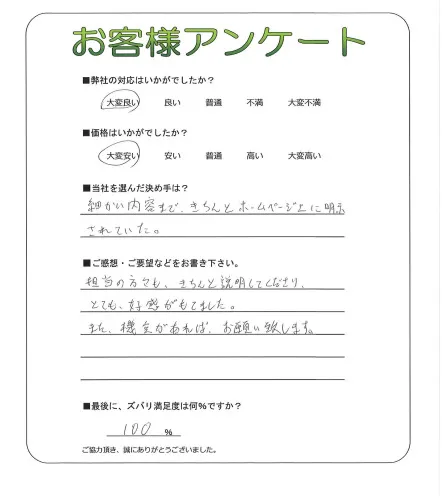 お客様アンケート
■弊社の対応はいかがでしたか？
大変良い 良い 普通 不満 大変不満
■価格はいかがでしたか？
大変安い 安い 普通 高い 大変高い
■当社を選んだ決め手は？
細かい内容まで、きちんとホームページ上に明示
されていた。
■ご感想・ご要望などをお書き下さい。
担当の方も、きちんと説明してくださり、
とても、好感がもてました。
また、機会があれば、お願い致します。
■最後に、ズバリ満足度は何％ですか？
100 %
ご協力頂き、誠にありがとうございました。